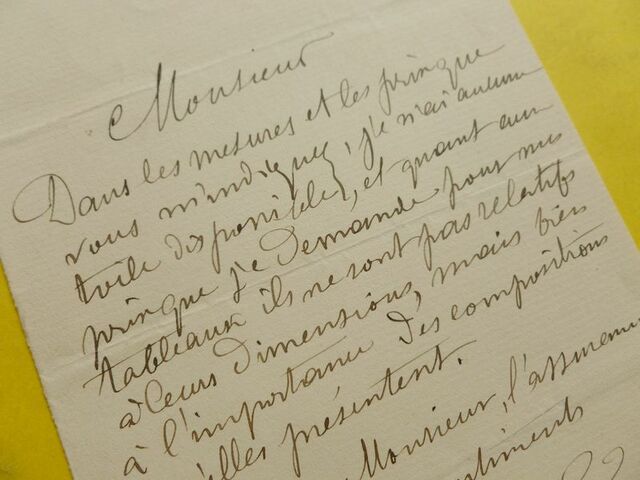 Monsieur
Dans les mesures et les prinque
vous m'indiquez, je n'ai aucune
toile disponible, et quant aux
prinque je demande pour mes
tableaux ils ne sont pas relatifs
à leurs dimensions, mais bien
à l'importance des compositions
qu'elles présentent.
Monsieur, l'assurance
sentiments